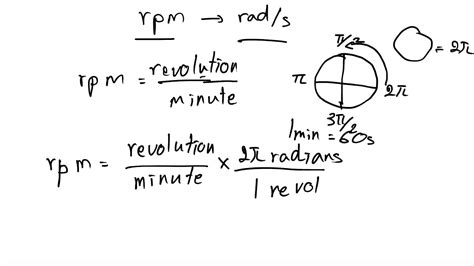 rpm → rad/s
rpm = revolution / minute
π/2
π
2π
3π/2
= 2π
1min = 60s
rpm = revolution / minute × 2π radians / 1 revol